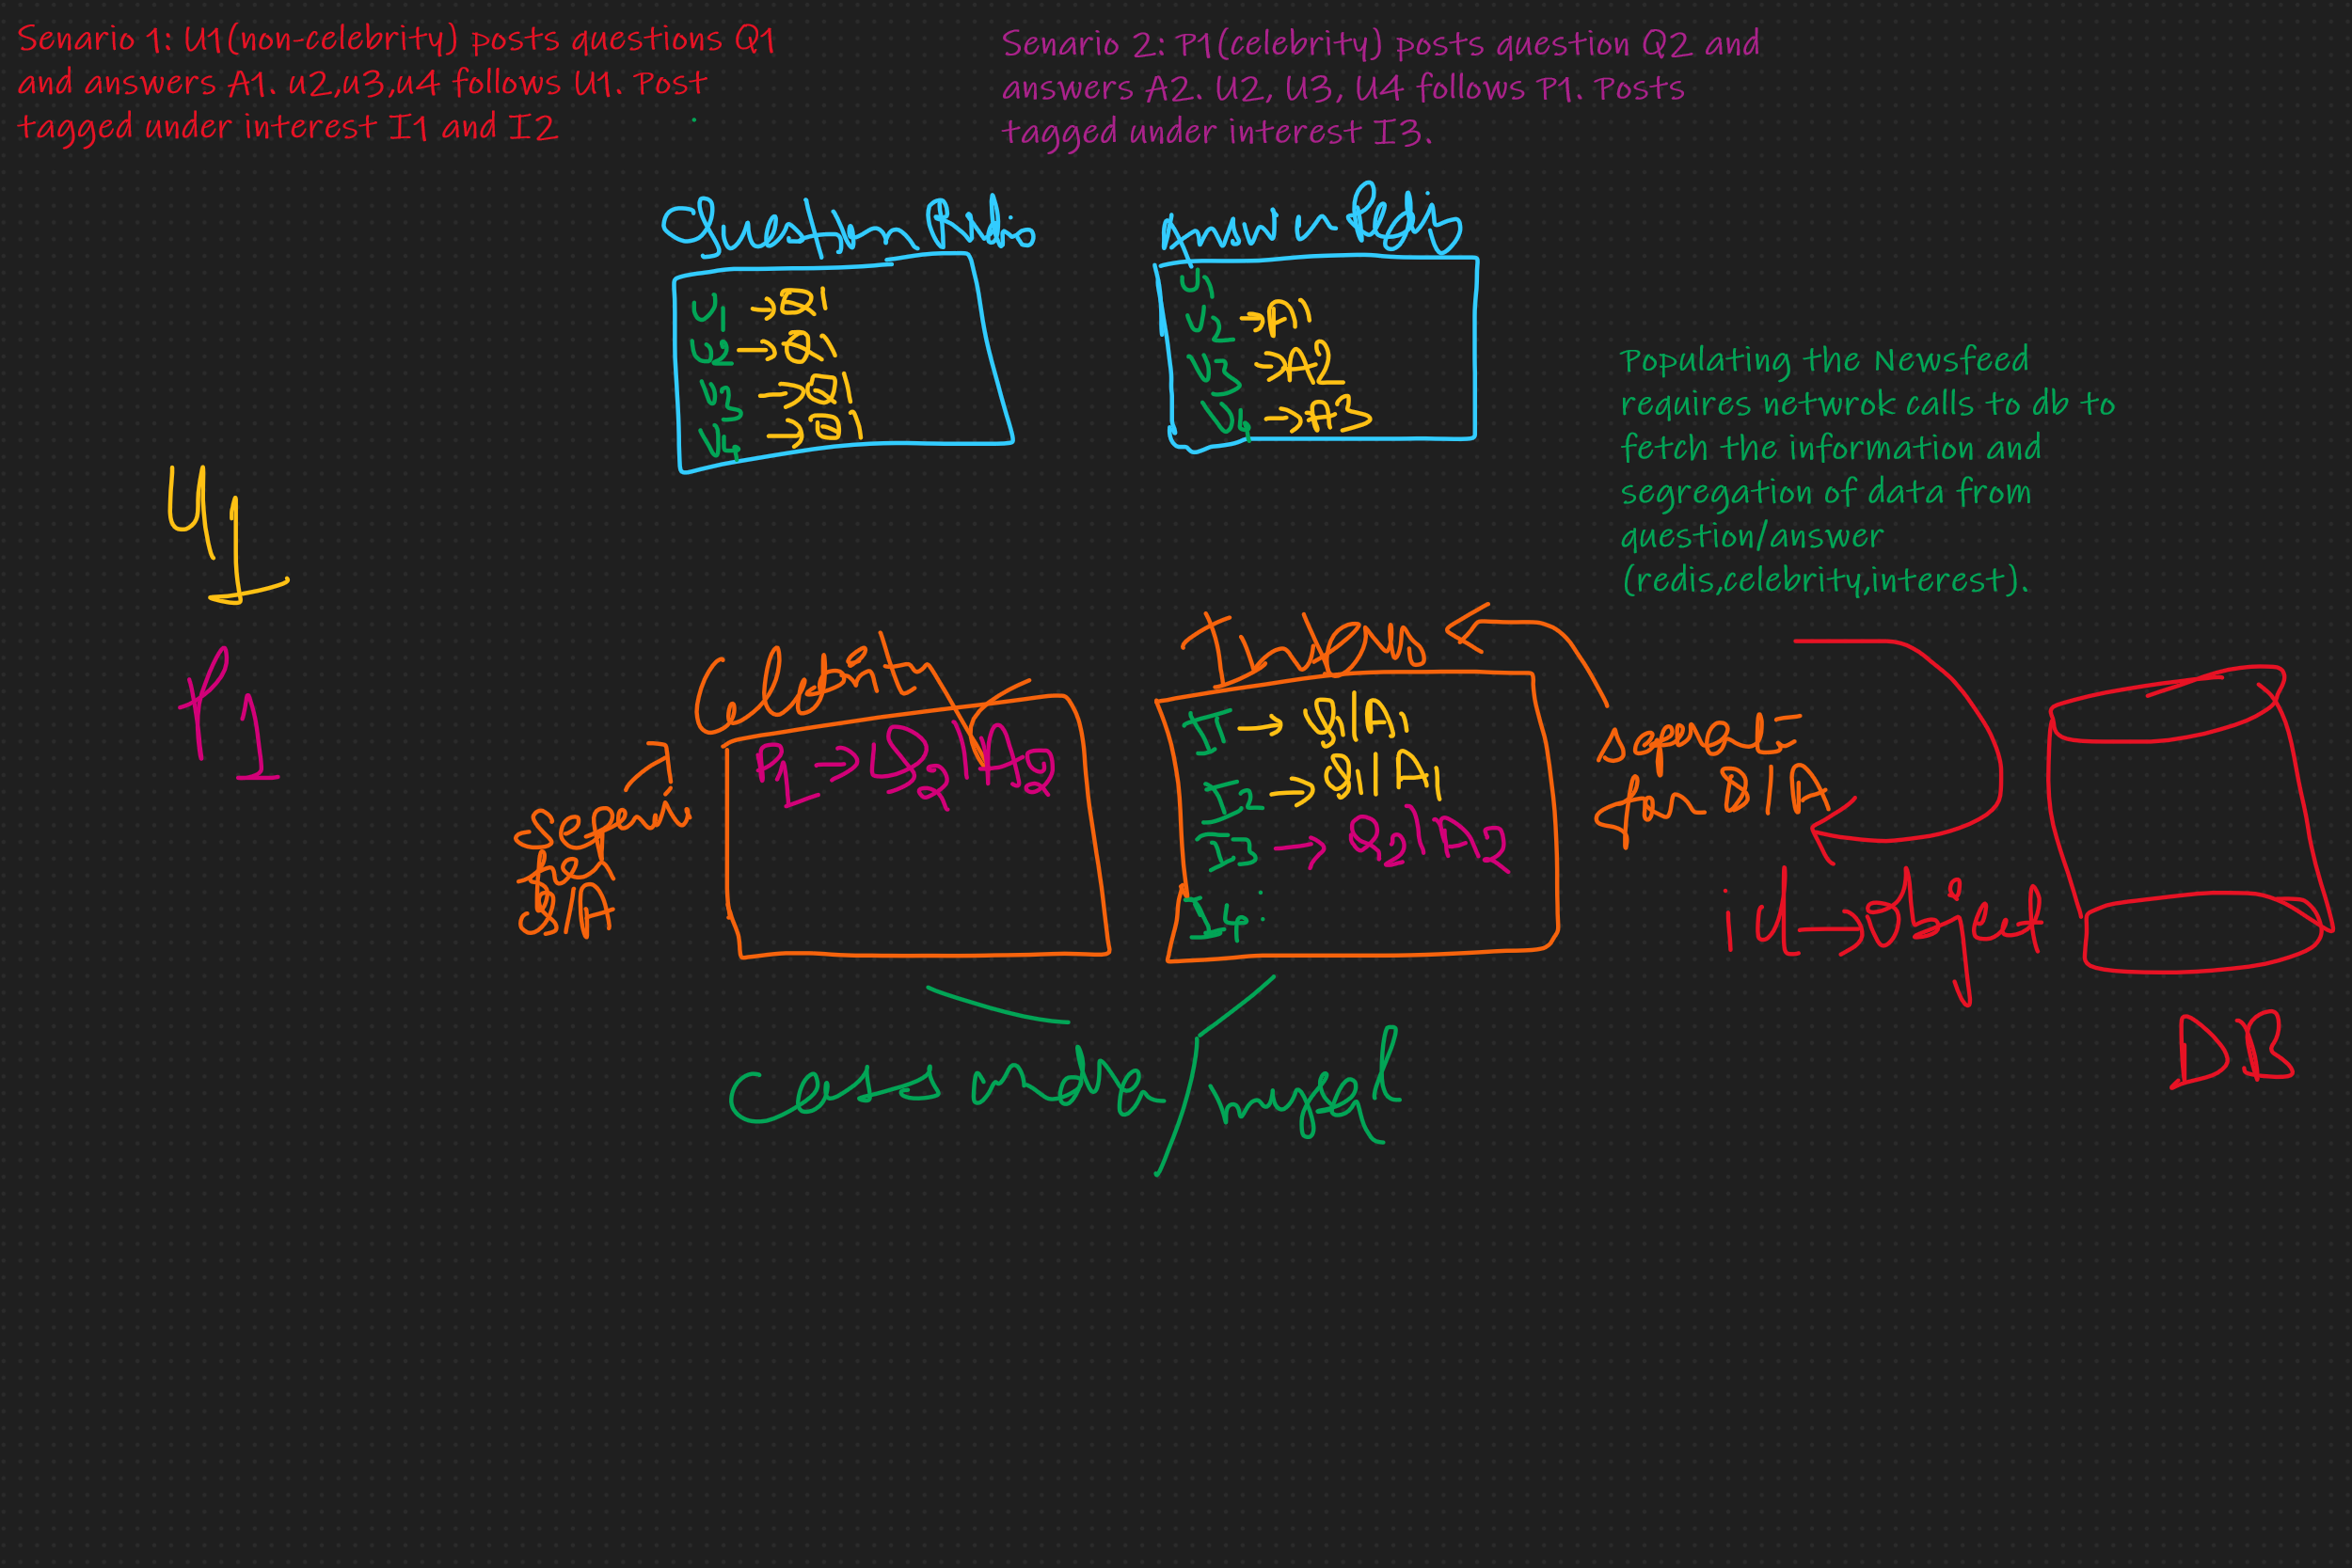 Senario 1: U1(non-celebrity) posts questions Q1
and answers A1. u2,u3,u4 follows U1. Post
tagged under interest I1 and I2
Senario 2: P1(celebrity) posts question Q2 and
answers A2. U2, U3, U4 follows P1. Posts
tagged under interest I3.
Question Redis
U1 →Q1
U2 →Q1
U3 →Q1
U4 →Q1
Answer Redis
U1
U2 →A1
U3 →A2
U4 →A3
Populating the Newsfeed
requires netwrok calls to db to
fetch the information and
segregation of data from
question/answer
(redis,celebrity,interest).
U1
P1
Celebrity
P1 →Q2/A2
seperate
for
Q/A
I1 → Q1/A1
I2 → Q1/A1
I3 → Q2/A2
I4:
seperate
for Q/A
id→object
DB
Cassandra/mysql